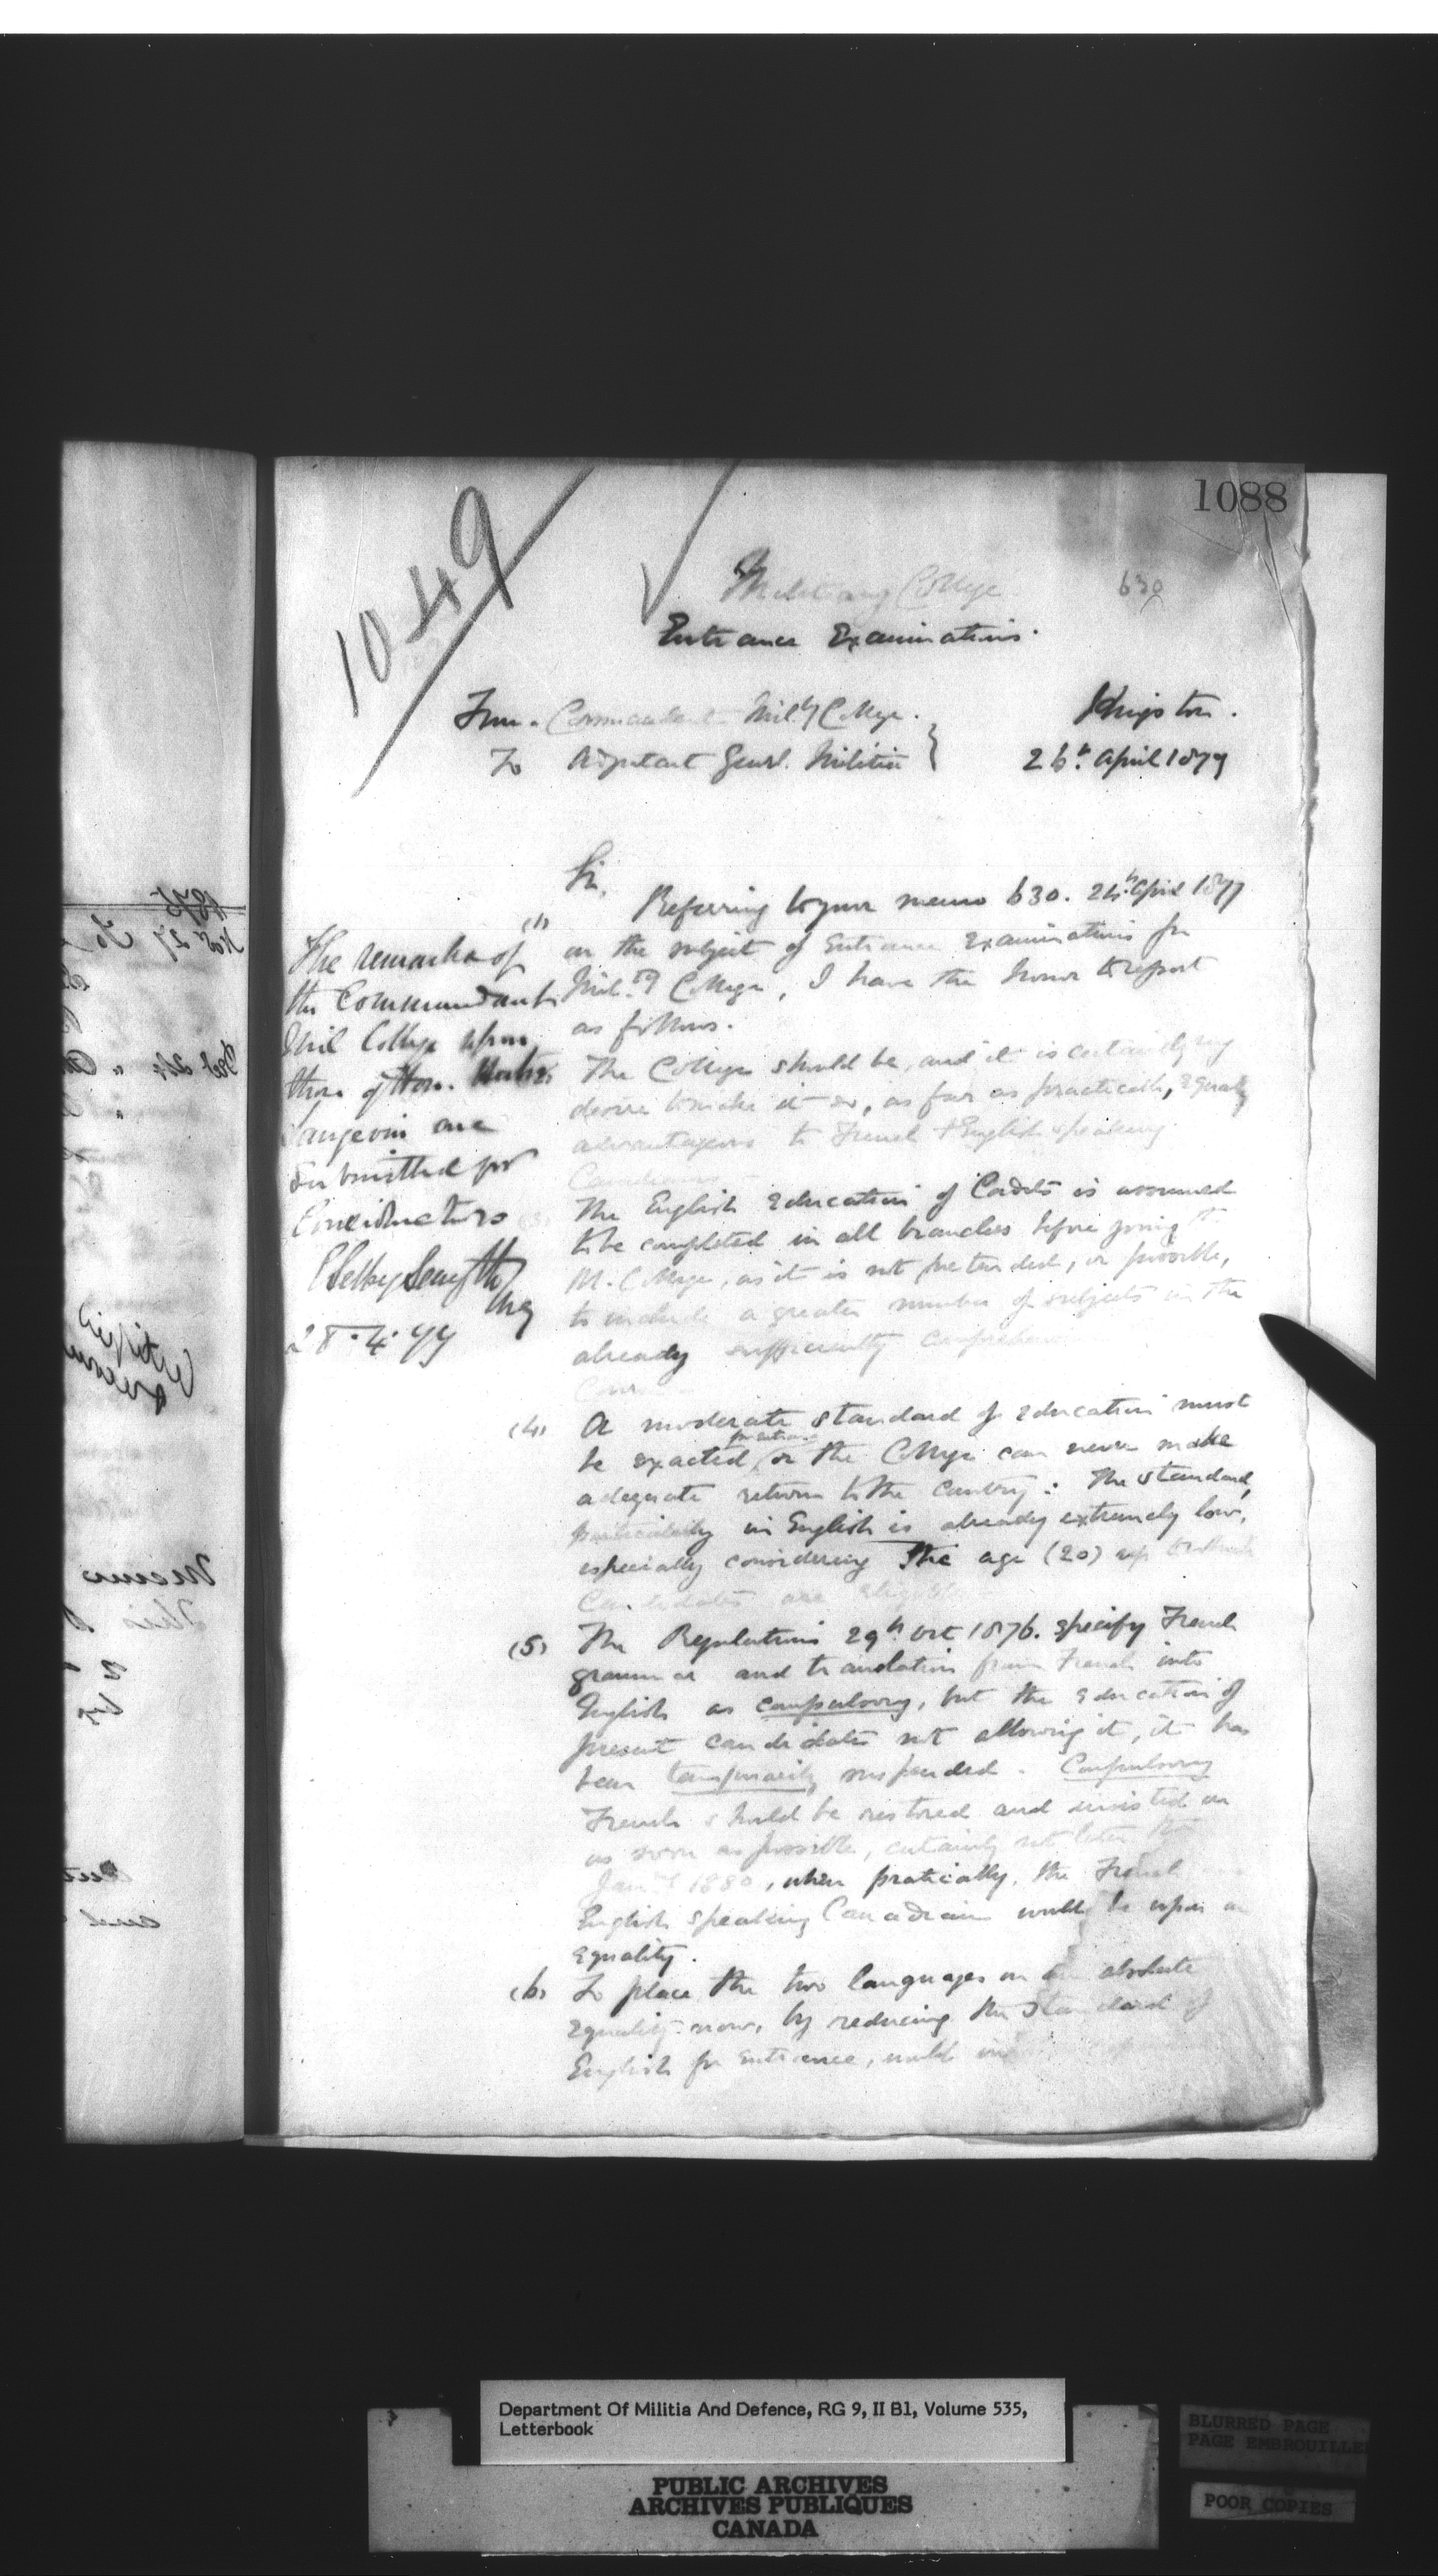 1088
1049
Military College
630
Entrance Examinations.
From. Commandant Mily College.
Kingston.
To Adjutant Genrl. Militia
26th April 1879
Sir,
(1) Referring to your memo 630. 24th April 1879
on the subject of Entrance Examinations for
Mil.ry College, I have the honor to report
as follows.
The College should be, and it is certainly my
desire to make it so, as far as practicable, equally
advantageous to French & English speaking
Canadians
(3) The English Education of Cadets is assumed
to be completed in all branches before joining
M. College, as it is not pretended, or possible,
to include a greater number of subjects in the
already sufficiently
Course
(4) A moderate standard of education must
be exacted, for entrance or the College can never make
adequate return to the country: The standard,
particularly in English is already extremely low,
especially considering the age (20) up to which
Candidates are eligible
(5) The Regulations 29th Oct 1876. specify French
grammar and translation from French into
English as compulsory, but the education of
present candidates not allowing it, it has
been temporarily suspended. Compulsory
French should be restored and insisted on
as soon as possible, certainly not later than
Jany 1880, when pratically, the French
English speaking Canadian would be upon an
equality.
(6) To place the two languages on an absolute
equality now, by reducing the standard of
English for entrance, would
The remarks of
the Commandant
Mil College upon
those of Hon. Hector
Langevin are
submitted for
Consideration
E Selby Smyth
28.4.79
Department Of Militia And Defence, RG 9, II B1, Volume 535,
Letterbook
PUBLIC ARCHIVES
ARCHIVES PUBLIQUES
CANADA
BLURRED PAGE
PAGE EMBROUILLEE
POOR COPIES